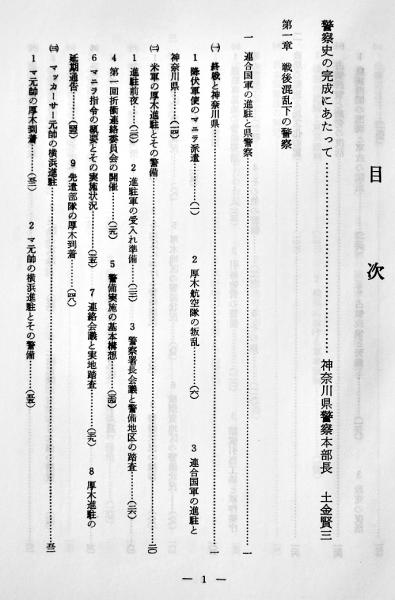 目次
警察史の完成にあたって……………………神奈川県警察本部長 土金賢三
第一章 戦後混乱下の警察
一 連合国軍の進駐と県警察……………………一
㈠ 終戦と神奈川県……………………一
1 降伏軍使のマニラ派遣………(二) 2 厚木航空隊の叛乱………(六) 3 連合国軍の進駐と
神奈川県………(一四)
㈡ 米軍の厚木進駐とその警備……………………二〇
1 進駐前夜………(二〇) 2 進駐軍の受入れ準備………(二二) 3 警察署長会議と警備地区の踏査………(二六)
4 第一回折衝連絡委員会の開催………(二九) 5 警備実施の基本構想………(三四)
6 マニラ指令の概要とその実施状況………(三五) 7 連絡会議と実地踏査………(三九) 8 厚木進駐の
延期通告………(四四) 9 先遣部隊の厚木到着………(四八)
㈢ マッカーサー元帥の横浜進駐……………………五三
1 マ元帥の厚木到着………(五三) 2 マ元帥の横浜進駐とその警備………(五五)
— 1 —